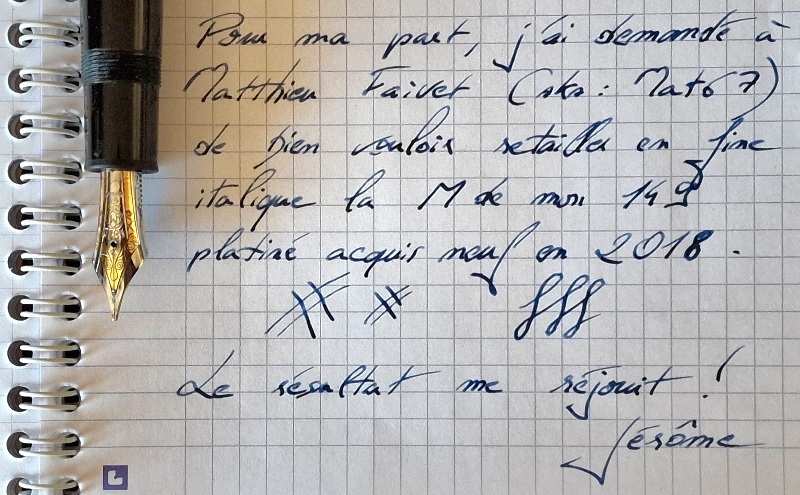 Pour ma part, j'ai demandé à
Matthieu Faivet (aka : Mat67)
de bien vouloir retailler en fine
italique la M de mon 149
platiné acquis neuf en 2018.
Le résultat me réjouit !
Jérôme